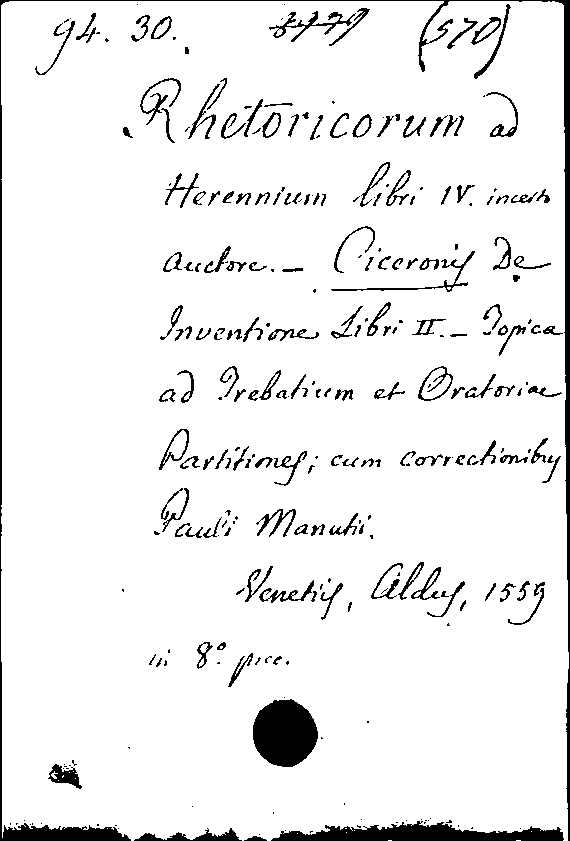 94. 30. 8479 (570)
Rhetoricorum ad
Herennium libri IV. incerto
auctore. — Ciceronis De
Inventione Libri II. — Topica
ad Trebatium et Oratoriae
Partitiones; cum correctionibus
Pauli Manutii.
Venetiis, Aldus, 1559
in 8.°